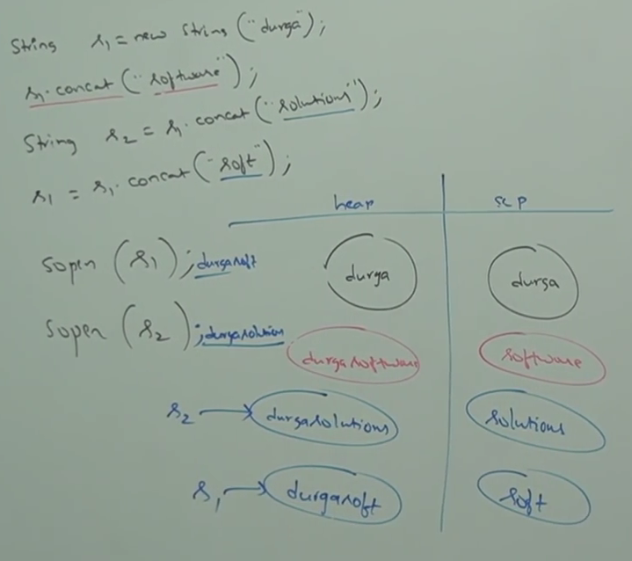 String s1 = new String("durga");
s1.concat("software");
String s2 = s1.concat("solutions");
s1 = s1.concat("soft");
heap scp
sopln(s1); durgasoft
durga durga
sopln(s2); durgasolution
durgasoftware software
s2 → durgasolutions solutions
s1 → durgasoft soft